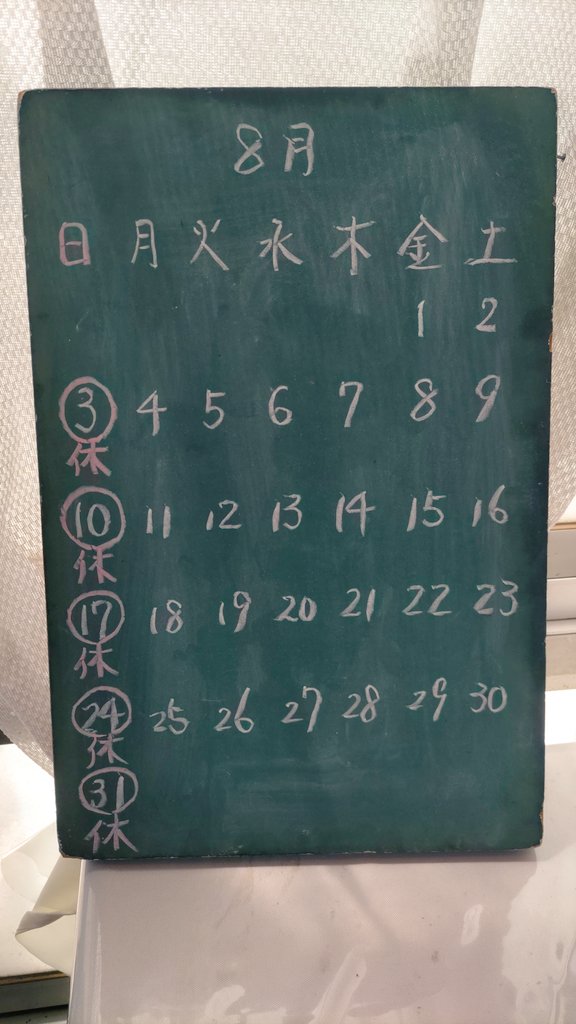 8月
日 月 火 水 木 金 土
1 2
3 4 5 6 7 8 9
休
10 11 12 13 14 15 16
休
17 18 19 20 21 22 23
休
24 25 26 27 28 29 30
休
31
休